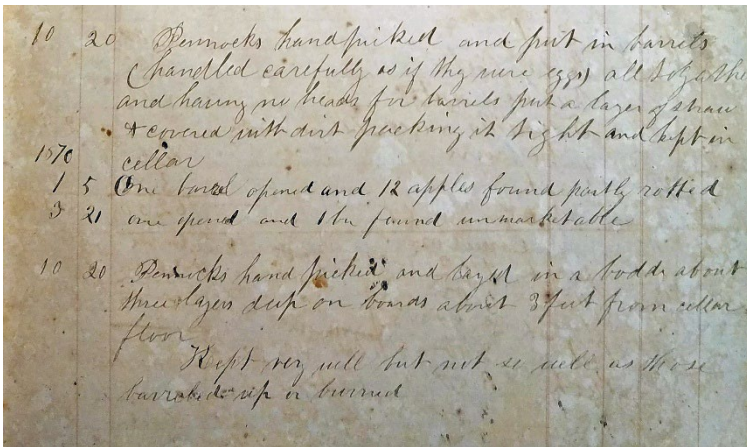 10 20 Pennocks handpicked and put in barrels
(handled carefully as if they were eggs) all together
and having no heads for barrels put a layer of straw
& covered with dirt packing it tight and kept in
1870 cellar
1 5 One barrel opened and 12 apples found partly rotted
3 21 one opened and 1 bu found unmarketable
10 20 Pennocks hand picked and layed in a body about
three layers deep on boards about 3 feet from cellar
floor
Kept very well but not so well as those
barreled up or burried